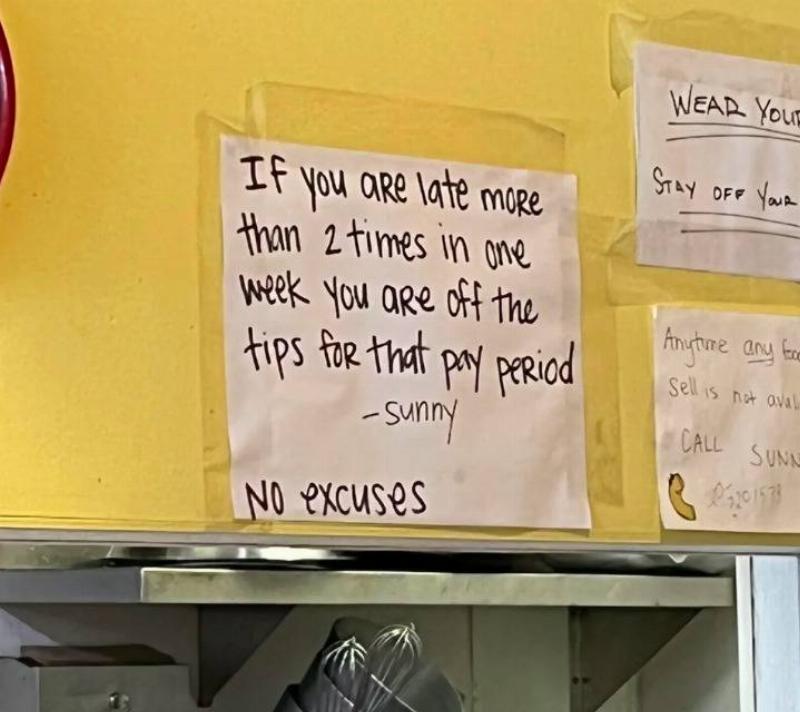 If you are late more
than 2 times in one
week you are off the
tips for that pay period
-Sunny
No excuses
WEAR YOUR
STAY OFF YOUR
Anytime any
Sell is not
CALL SUNN